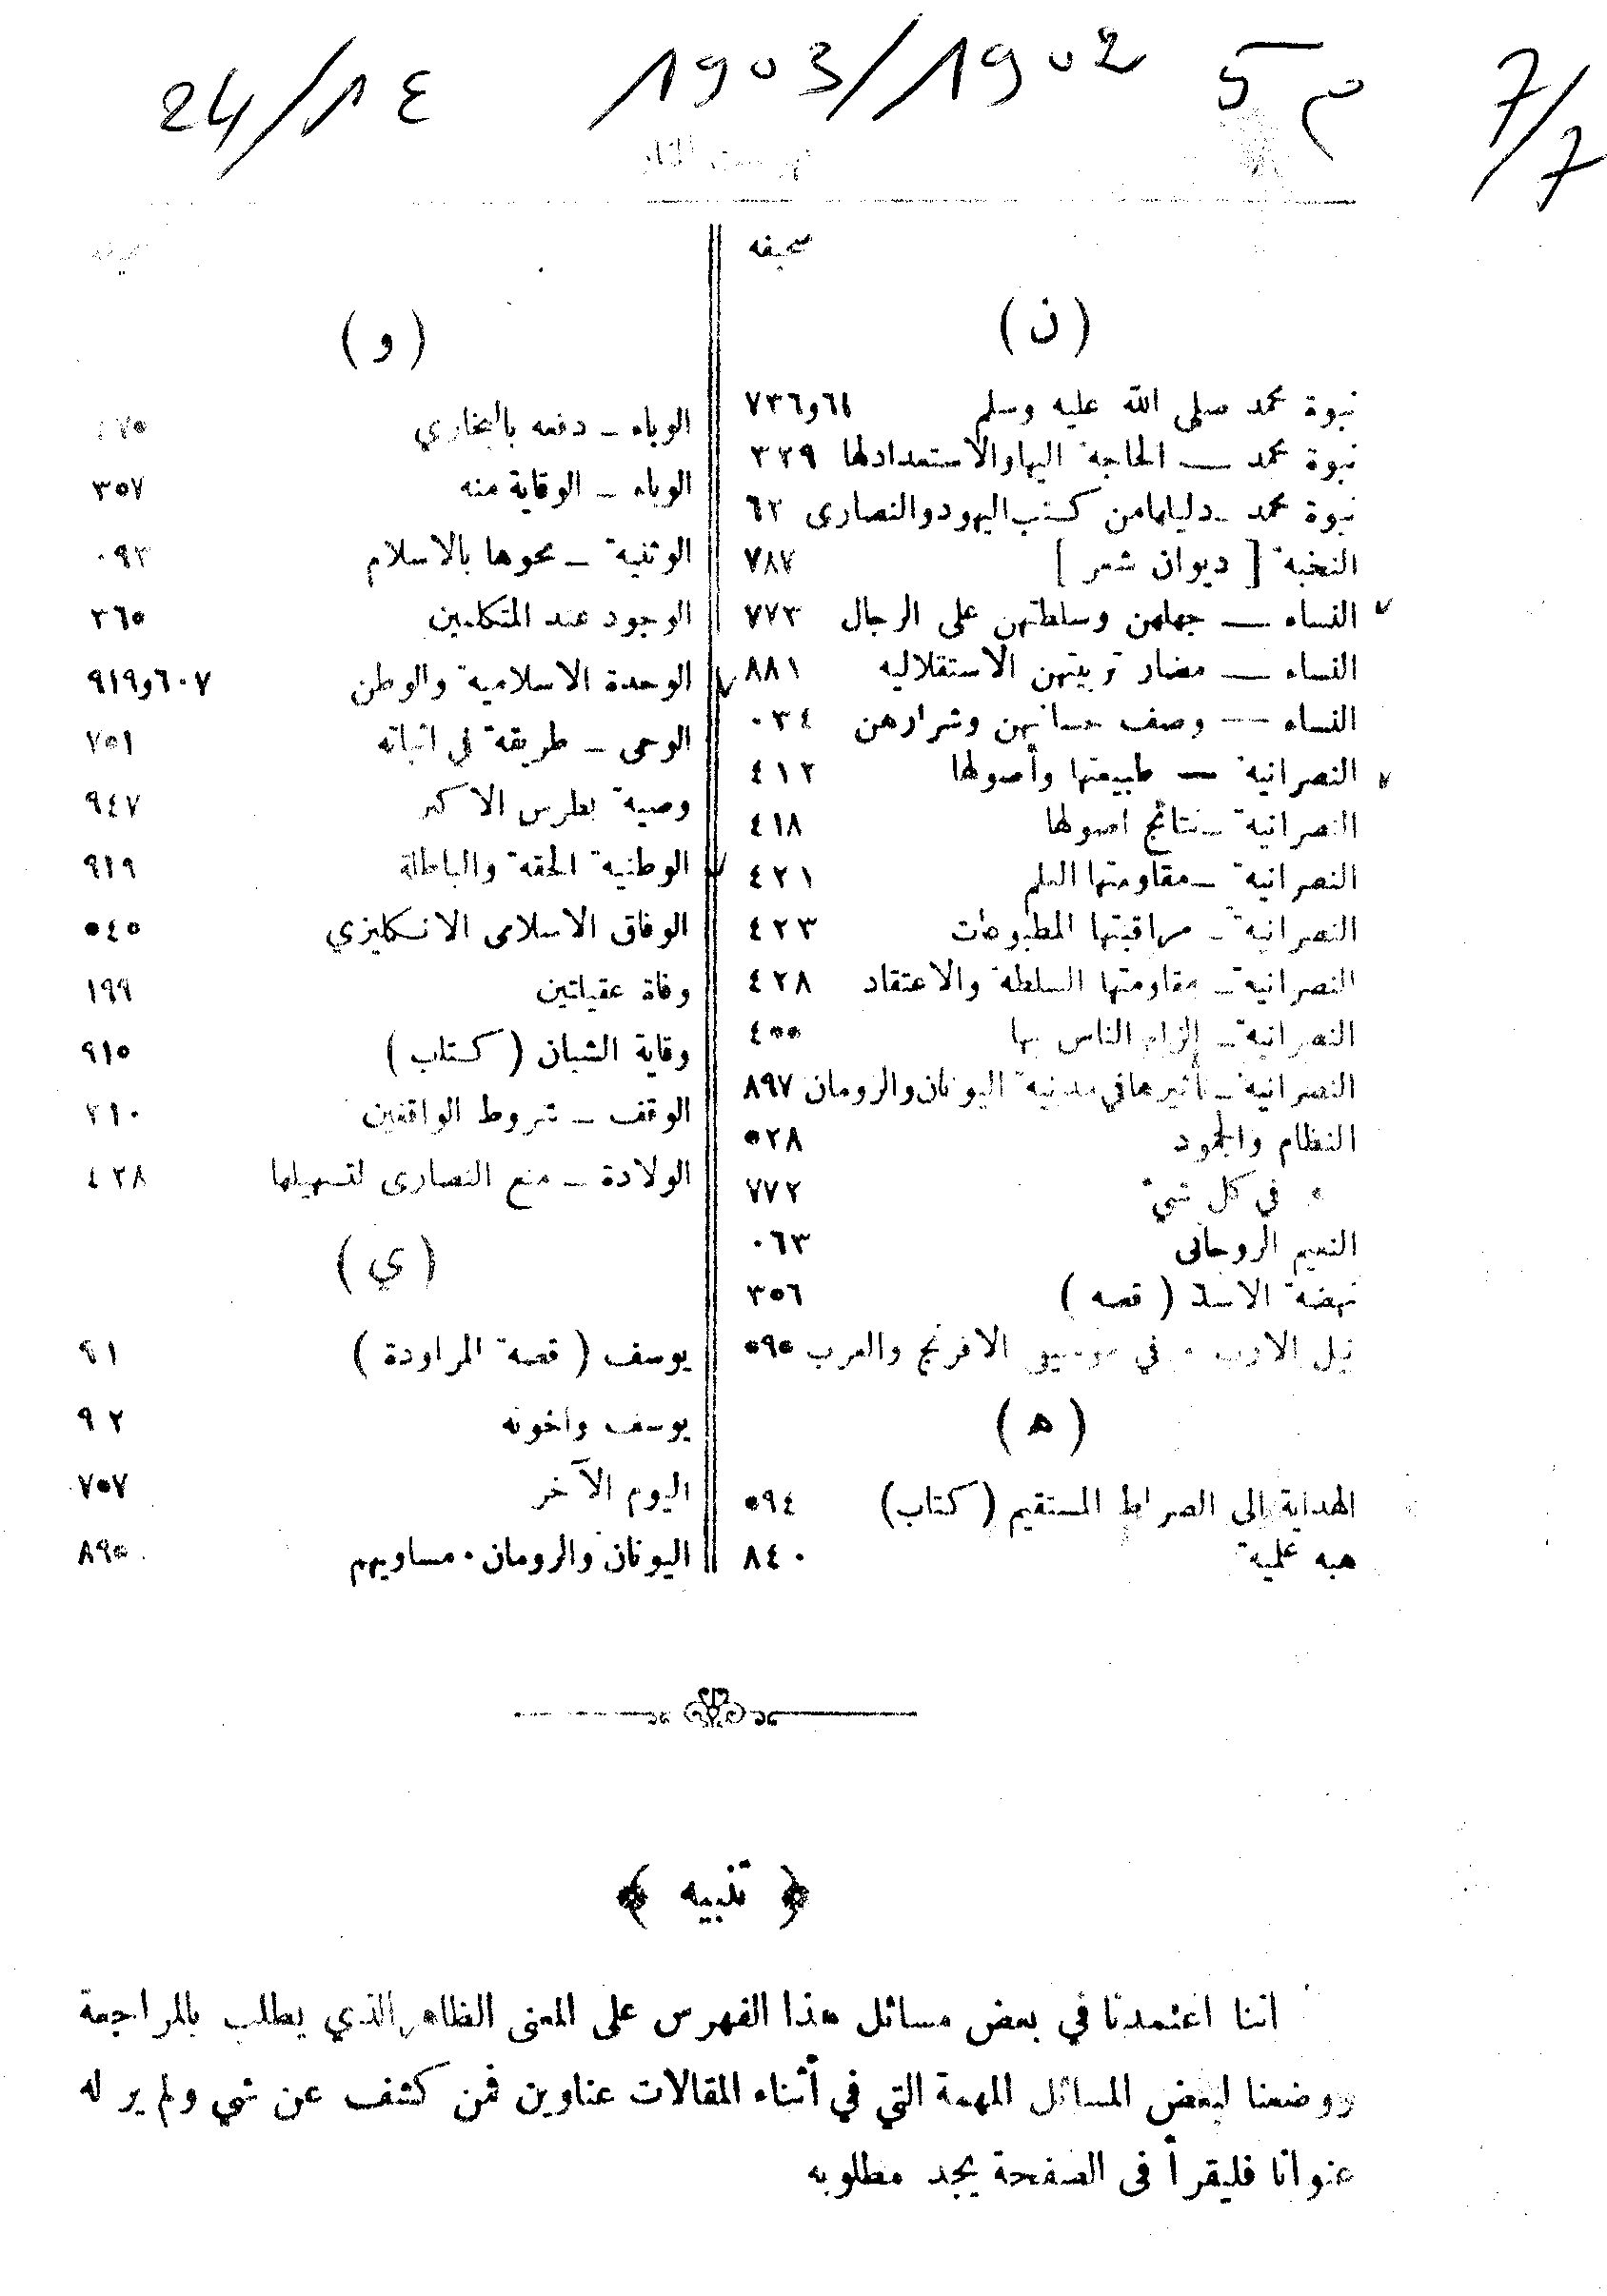 24/١٤ 1903/1902 م 5 7/7
فهرست المنار
صحيفه
(ن)
نبوة محمد صلى الله عليه وسلم ٦٤و٧٣٦
نبوة محمد — الحاجة اليها والاستعدادلها ٣٢٩
نبوة محمد - دليلها من كتب اليهود والنصارى ٦٢
النخبة [ ديوان شعر ] ٧٨٧
النساء — جهلهن وسلطتهن على الرجال ٧٧٣
النساء — مضار تربيتهن الاستقلاليه ٨٨١
النساء — وصف حسانهن وشرارهن ٠٣٤
النصرانية — طبيعتها وأصولها ٤١٢
النصرانية - نتائج اصولها ٤١٨
النصرانية - مقاومتها العلم ٤٢١
النصرانية - مراقبتها المطبوعات ٤٢٣
النصرانية - مقاومتها السلطة والاعتقاد ٤٢٨
النصرانية - إلزام الناس بها ٤٥٥
النصرانية - تأثيرها في مدنية اليونان والرومان ٨٩٧
النظام والجمود ٥٢٨
» في كل شيء ٧٧٢
النعيم الروحانى ٠٦٣
نهضة الاسد ( قصه ) ٣٥٦
نيل الارب في موسيقى الافرنج والعرب ٥٩٥
(ه)
الهداية الى الصراط المستقيم (كتاب) ٥٩٤
هبه علمية ٨٤٠
صحيفه
(و)
الوباء - دفعه بالبخاري ٤٧٥
الوباء - الوقاية منه ٣٥٧
الوثنية - محوها بالاسلام ٠٩٢
الوجود عند المتكلمين ٣٦٥
الوحدة الاسلامية والوطن ٦٠٧و٩١٩
الوحى - طريقة في اثباته ٧٥١
وصية بطرس الاكبر ٩٤٧
الوطنية الحقة والباطلة ٩١٩
الوفاق الاسلامى الانكليزي ٥٤٥
وفاة عقيلتين ١٩٩
وقاية الشبان ( كتاب ) ٩١٥
الوقف - شروط الواقفين ٢١٠
الولادة - منع النصارى لتسهيلها ٤٢٨
(ي)
يوسف ( قصة المراودة ) ٩١
يوسف واخوته ٩٢
اليوم الآخر ٧٥٧
اليونان والرومان · مساويهم ٨٩٥
﴿ تنبيه ﴾
اننا اعتمدنا في بعض مسائل هذا الفهرس على المعنى الظاهر الذي يطلب بالمراجعة
ووضعنا لبعض المسائل المهمة التي في أثناء المقالات عناوين فمن كشف عن شي ولم ير له
عنوانا فليقرأ فى الصفحة يجد مطلوبه